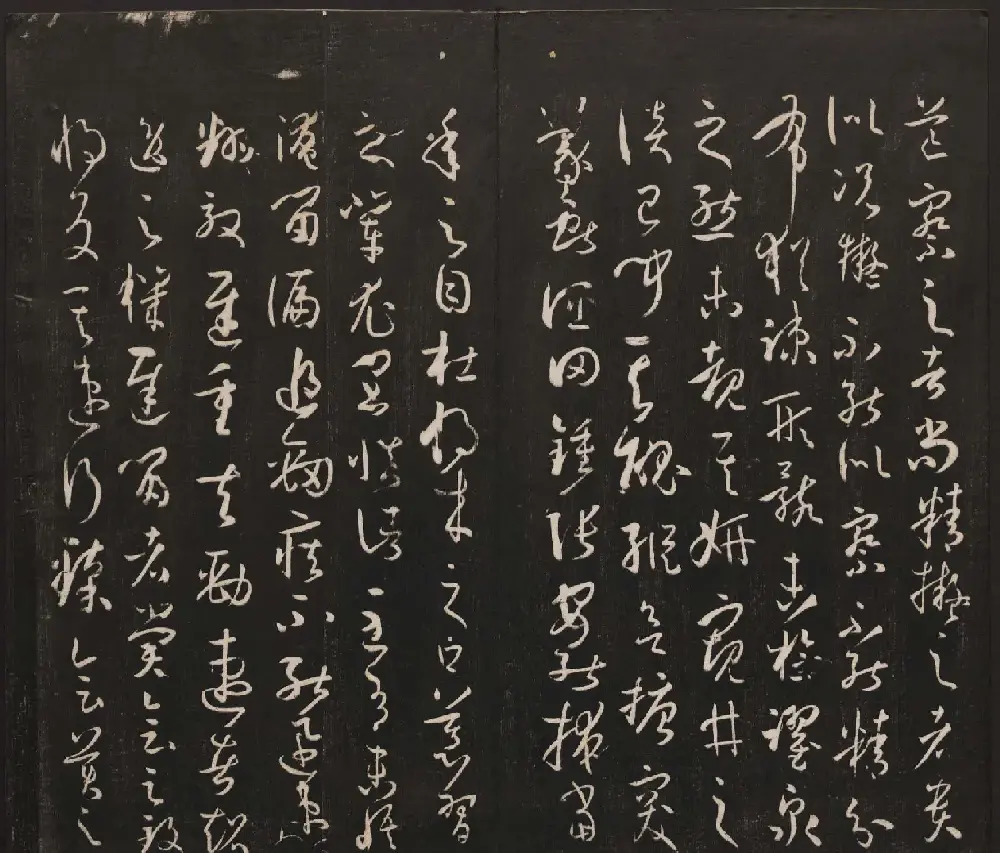 芒察之者尚精擬之者貴
似況擬不能似察不能精分
布猶疎形骸未檢躍泉
之態未覩其妍窺井之
談已聞其醜縱欲搪突
羲獻誣罔鍾張安能掩當
年之目杜將來之口慕習
之輩尤宜慎諸至有未悟
淹留偏追勁疾不能迅速
翻效遲重夫勁速者超
逸之機遲留者賞會之致
將反其速行臻會美之